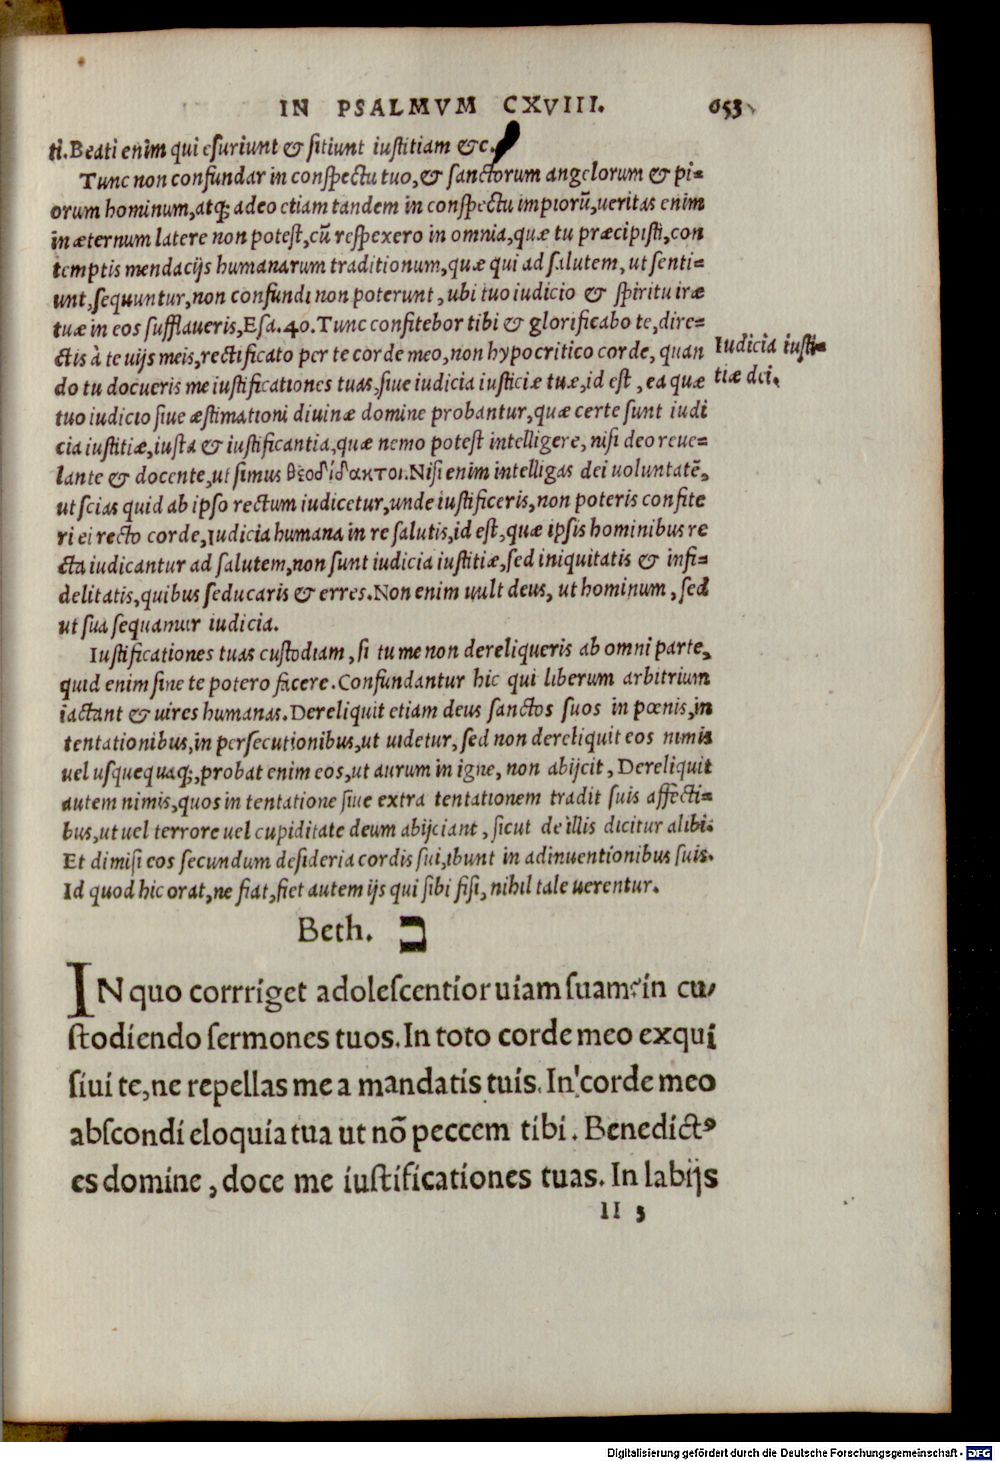 IN PSALMVM CXVIII. 653
ti. Beati enim qui esuriunt & sitiunt iustitiam &c.
Tunc non confundar in conspectu tuo, & sanctorum angelorum & pi=
orum hominum, atq; adeo etiam tandem in conspectu impiorũ, ueritas enim
in æternum latere non potest, cũ respexero in omnia, quæ tu præcipisti, con
temptis mendacijs humanarum traditionum, quæ qui ad salutem, ut senti=
unt, sequuntur, non confundi non poterunt, ubi tuo iudicio & spiritu iræ
tuæ in eos sufflaueris, Esa. 40. Tunc confitebor tibi & glorificabo te, dire=
ctis à te uijs meis, rectificato per te corde meo, non hypocritico corde, quan
do tu docueris me iustificationes tuas, siue iudicia iusticiæ tuæ, id est, ea quæ
Iudicia iusti=
tiæ dei.
tuo iudicio siue æstimationi diuinæ domine probantur, quæ certe sunt iudi
cia iustitiæ, iusta & iustificantia, quæ nemo potest intelligere, nisi deo reue=
lante & docente, ut simus θεοδίδακτοι. Nisi enim intelligas dei uoluntatẽ,
ut scias quid ab ipso rectum iudicetur, unde iustificeris, non poteris confite
ri ei recto corde, Iudicia humana in re salutis, id est, quæ ipsis hominibus re
cta iudicantur ad salutem, non sunt iudicia iustitiæ, sed iniquitatis & infi=
delitatis, quibus seducaris & erres. Non enim uult deus, ut hominum, sed
ut sua sequamur iudicia.
Iustificationes tuas custodiam, si tu me non dereliqueris ab omni parte,
quid enim sine te potero facere. Confundantur hic qui liberum arbitrium
iactant & uires humanas. Dereliquit etiam deus sanctos suos in pœnis, in
tentationibus, in persecutionibus, ut uidetur, sed non dereliquit eos nimis
uel usquequaq;, probat enim eos, ut aurum in igne, non abijcit, Dereliquit
autem nimis, quos in tentatione siue extra tentationem tradit suis affecti=
bus, ut uel terrore uel cupiditate deum abijciant, sicut de illis dicitur alibi.
Et dimisi eos secundum desideria cordis sui, ibunt in adinuentionibus suis.
Id quod hic orat, ne fiat, fiet autem ijs qui sibi fisi, nihil tale uerentur.
Beth. ב
IN quo corrriget adolescentior uiam suam? in cu/
stodiendo sermones tuos. In toto corde meo exqui
siui te, ne repellas me a mandatis tuis. In corde meo
abscondi eloquia tua ut nõ peccem tibi. Benedictꝰ
es domine, doce me iustificationes tuas. In labijs
II 3
Digitalisierung gefördert durch die Deutsche Forschungsgemeinschaft - DFG